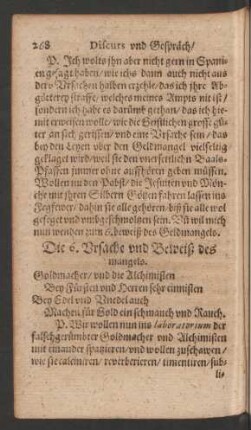 268 Discurs vnd Gespräch/
P. Ich wolts jhn aber nicht gern in Spani-
en gesagt haben/ wie ichs dann auch nicht aus
der Vrsachen halben erzehle/ das ich jhre Ab-
götterey straffe/ welches meines Ampts nit ist/
sondern ich habe es darumb gethan/ das ich hie-
mit erweisen wolle/ wie die Geistlichen grosse gü-
ter an sich gerissen/ vnd eine Vrsache sein/ das
bey den Leyen vber den Geldmangel vielfeltig
geklaget wird/ weil sie den vnersettlichen Baals-
Pfaffen jmmer ohne auffhören geben müssen.
Wollen nu den Pabst/ die Jesuiten vnd Mön-
che mit jhren Silbern Götzen fahren lassen ins
Fegfewer/ dahin sie alle gehören/ biß sie alle wol
gefeget vnd vmbgeschmoltzen sein. Vñ wil mich
nun wenden zum 6. beweiß des Geldmangels.
Die 6. Vrsache vnd Beweiß des
mangels.
Goldmacher/ vnd die Alchimisten
Bey Fürsten vnd Herren sehr einnisten
Bey Edel vnd Vnedel auch
Machen für Gold ein schmauch vnd Rauch.
P. Wir wollen nun ins laboratorium der
falschgerühmbter Goldmacher vnd Alchimisten
mit einander spatzieren/ vnd wollen zuschawen/
wie sie calciniren/ reverberieren/ cimentiren/ sub-
li-